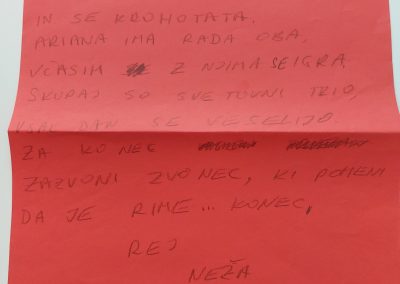 IN SE KROHOTATA.
ARIANA IMA RADA OBA,
VČASIH Z NJIMA SE IGRA.
SKUPAJ SO SVETOVNI TRIO,
VSAK DAN SE VESELIJO.
ZA KONEC
ZAZVONI ZVONEC, KI POMENI
DA JE RIME... KONEC,
REJ
NEŽA